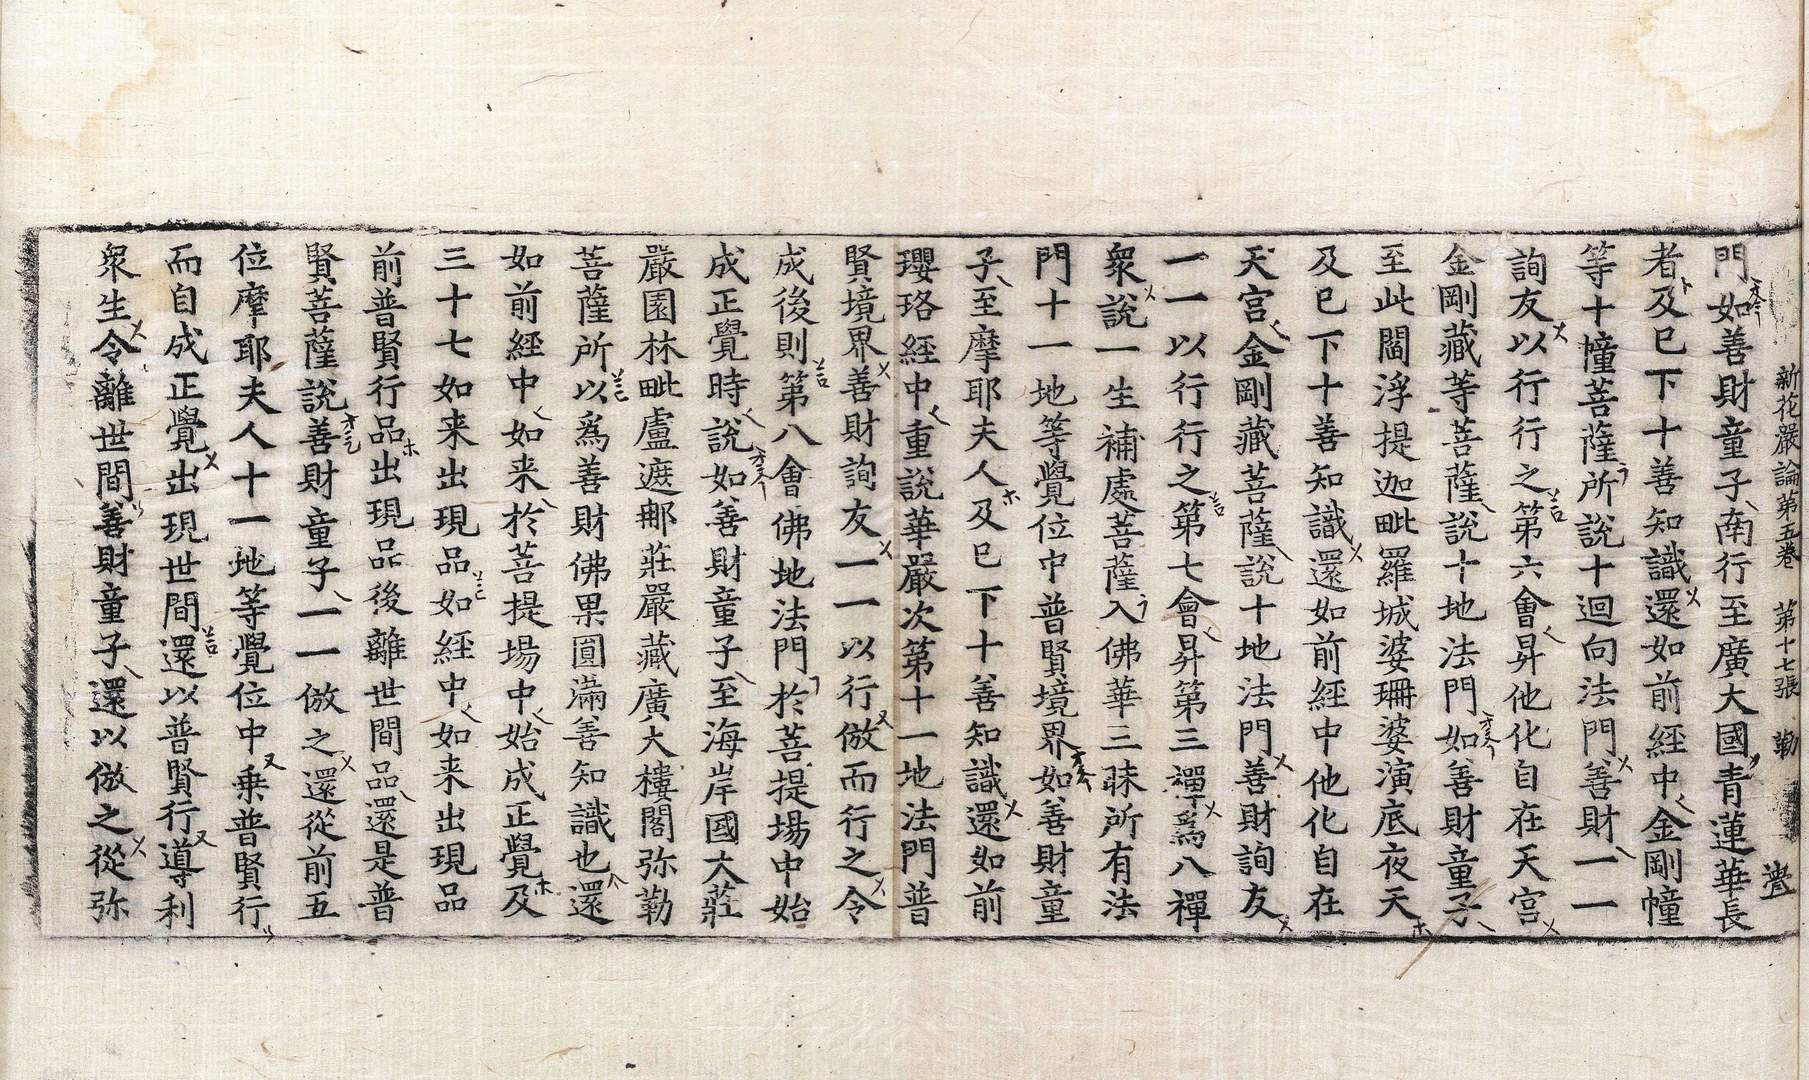 新花嚴論第五卷　第十七張　勒
門如善財童子南行至廣大國青蓮華長
者及巳下十善知識還如前經中金剛幢
等十幢菩薩所說十迴向法門善財一一
詢友以行行之第六會昇他化自在天宮
金剛藏等菩薩說十地法門如善財童子
至此閻浮提迦毗羅城婆珊婆演底夜天
及巳下十善知識還如前經中他化自在
天宮金剛藏菩薩說十地法門善財詢友
一一以行行之第七會昇第三禪爲八禪
衆說一生補處菩薩入佛華三昧所有法
門十一地等覺位中普賢境界如善財童
子至摩耶夫人及巳下十善知識還如前
瓔珞經中重說華嚴次第十一地法門普
賢境界善財詢友一一以行倣而行之令
成後則第八會佛地法門於菩提場中始
成正覺時說如善財童子至海岸國大莊
嚴園林毗盧遮那莊嚴藏廣大樓閣弥勒
菩薩所以爲善財佛果圓滿善知識也還
如前經中如来於菩提場中始成正覺及
三十七如来出現品如經中如来出現品
前普賢行品出現品後離世間品還是普
賢菩薩說善財童子一一倣之還從前五
位摩耶夫人十一地等覺位中乗普賢行
而自成正覺出現世間還以普賢行導利
衆生令離世間善財童子還以倣之從弥